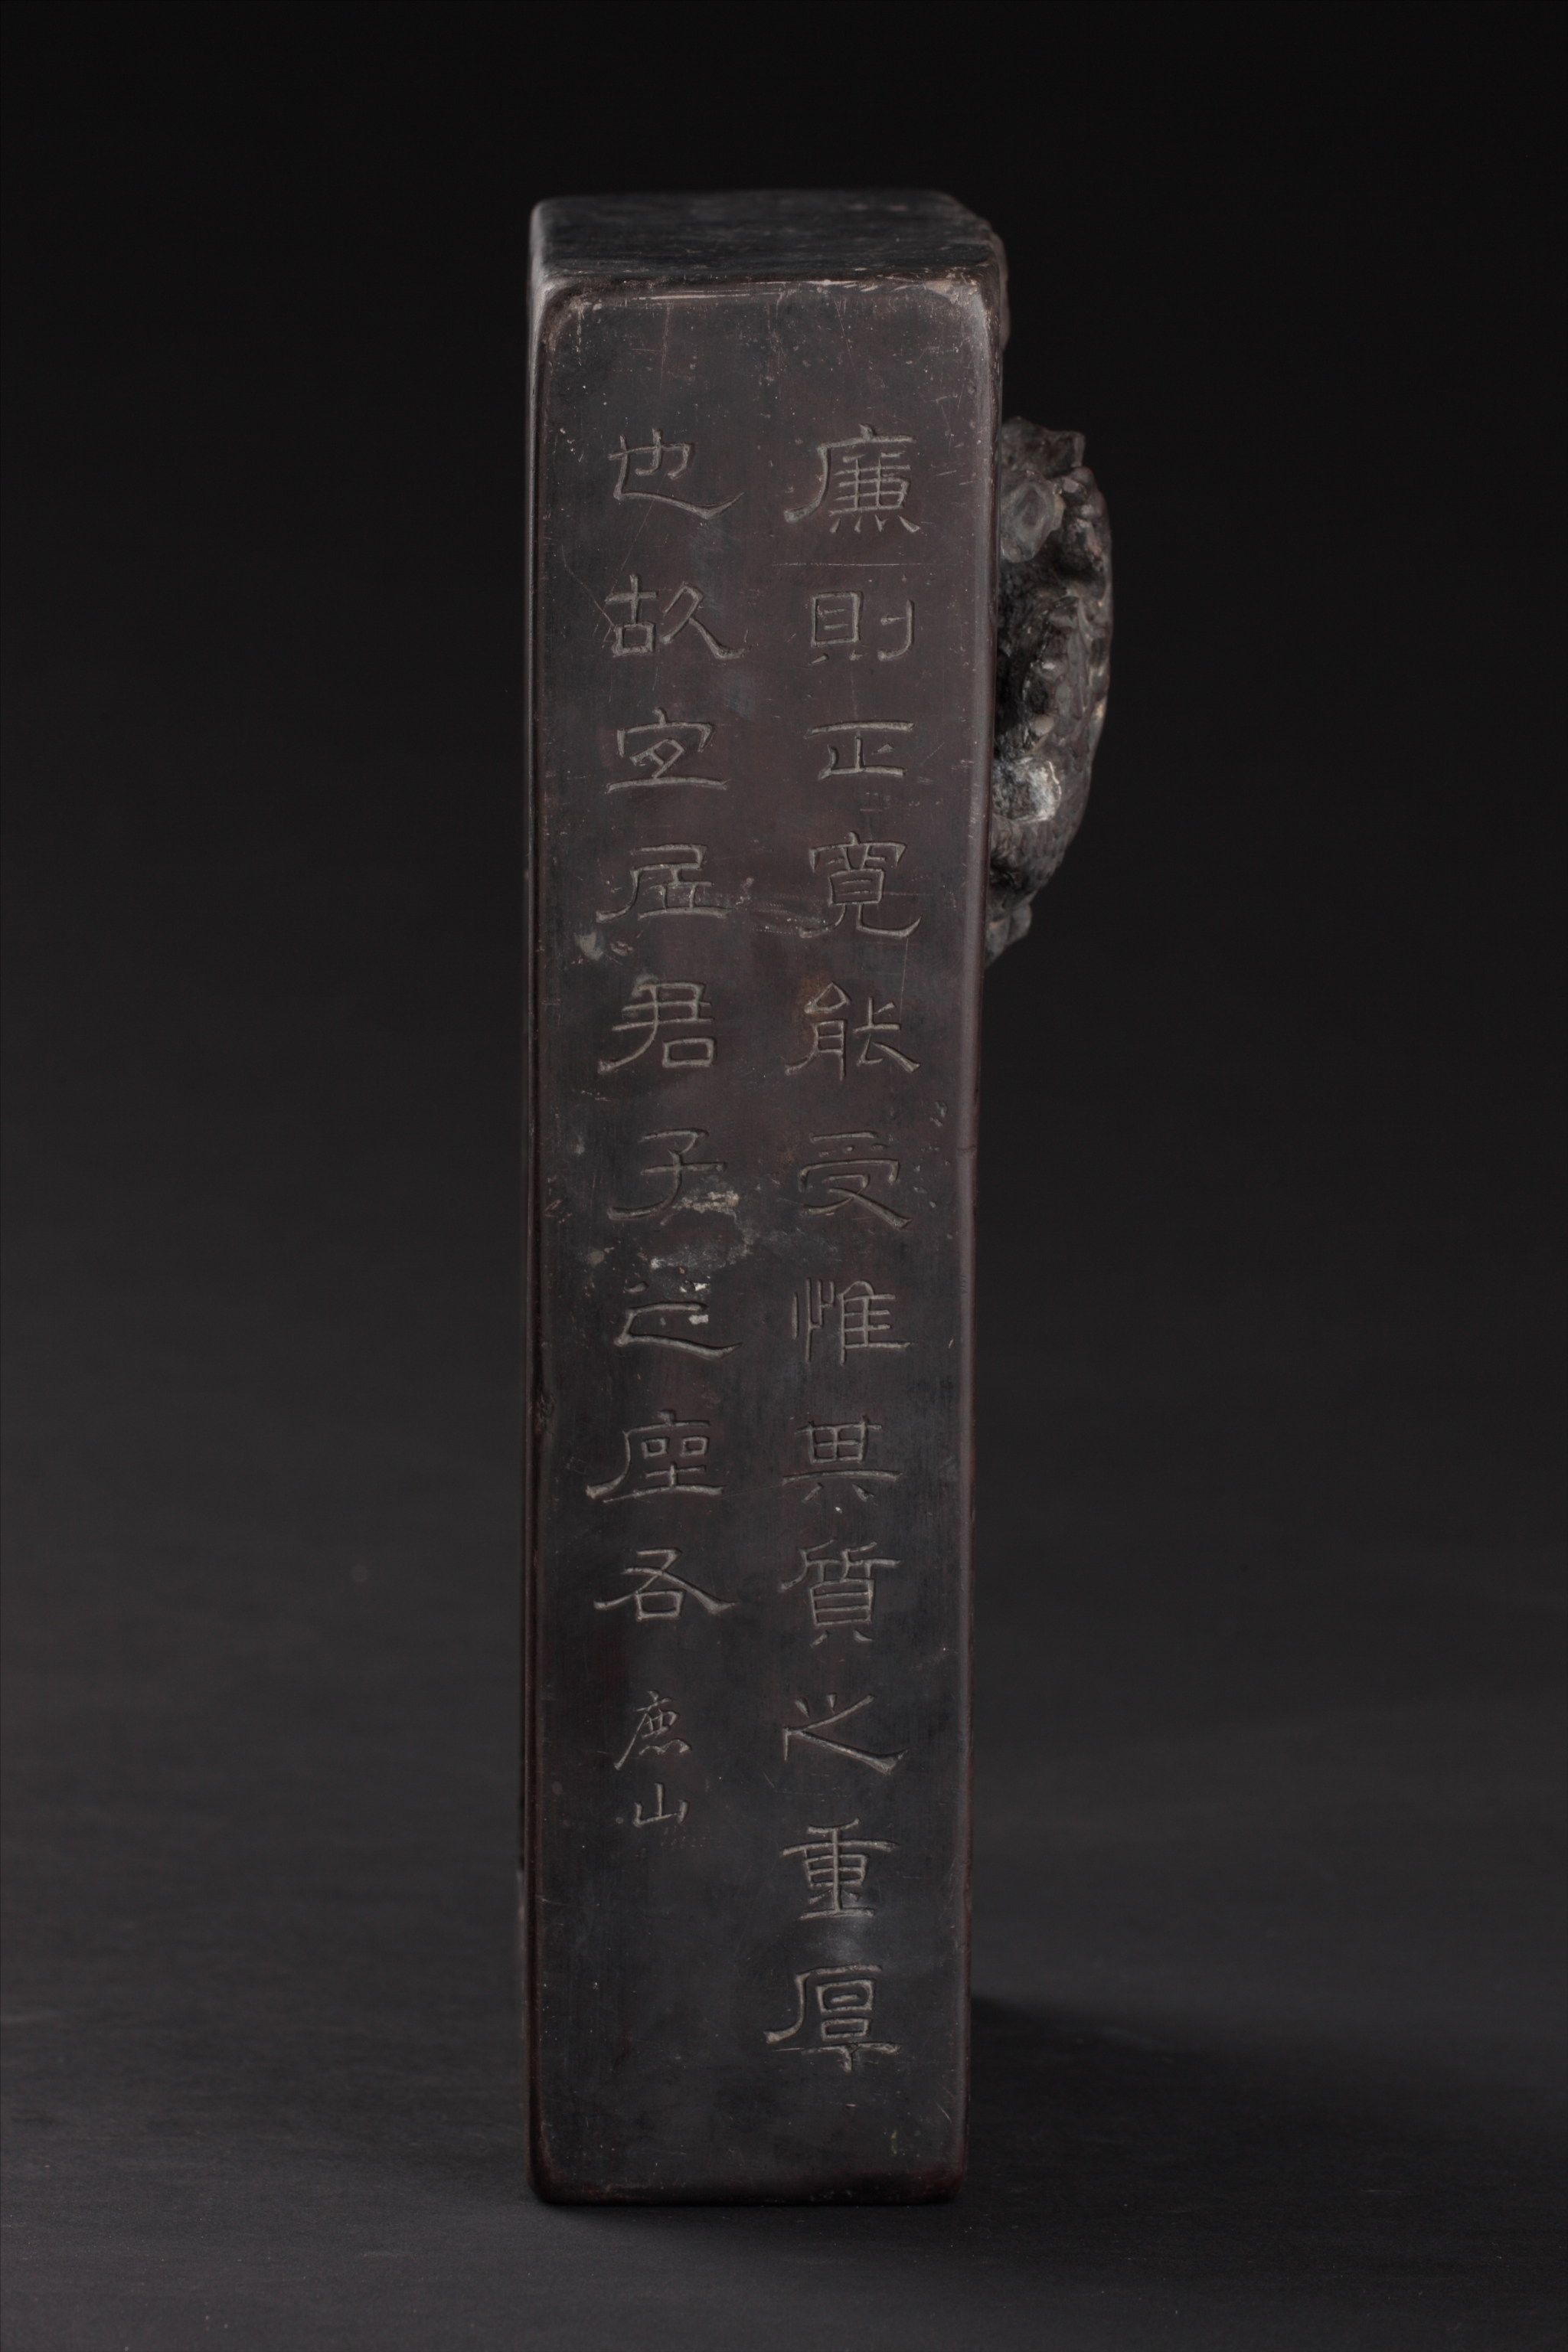 廉則正寬能受惟其質之重厚
也故宜居君子之座右 鹿山